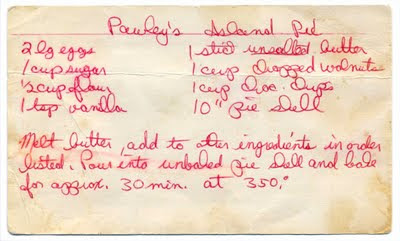 Pawley's Island Pie
2 lg eggs 1 stick unsalted butter
1 cup sugar 1 cup chopped walnuts
½ cup flour 1 cup Choc. Chips
1 tsp vanilla 10" pie shell
Melt butter, add to other ingredients in order
listed. Pour into unbaked pie shell and bake
for approx. 30 min. at 350°.